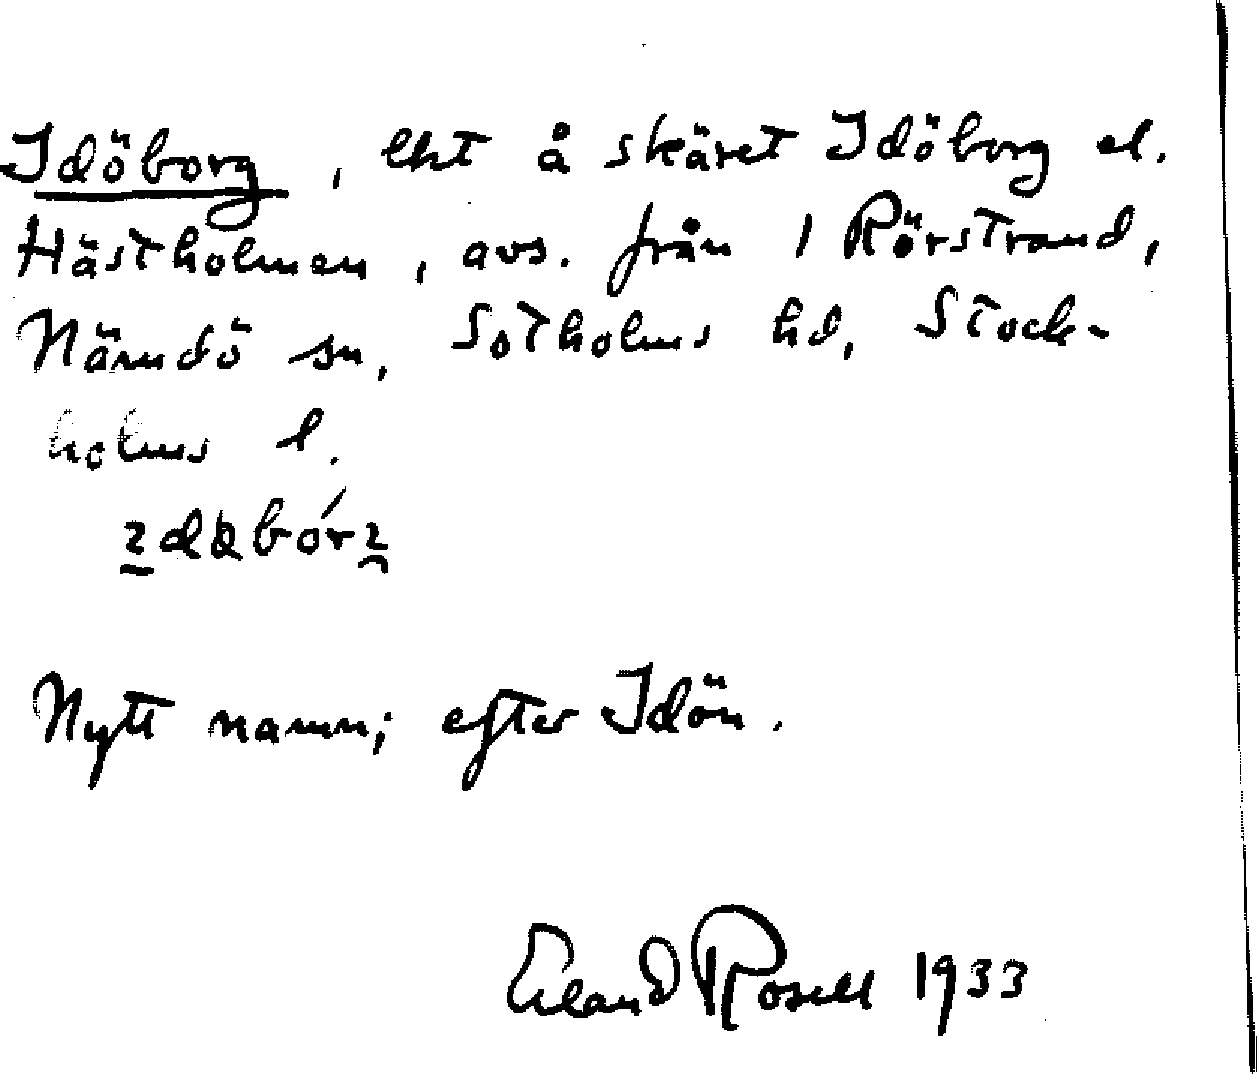 Idöborg, lht å skäret Idöborg el.
Hästholmen, avs. från 1 Rörstrand,
Nämdö sn, Sotholms hd, Stock-
holms l.
Nytt namn; efter Idön.
Erland Rosell 1933